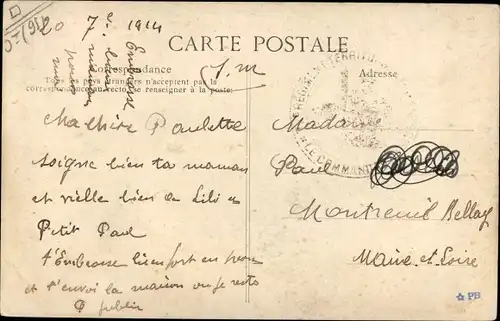 20
7 1914
CARTE POSTALE
Correspondance
Tous les pays étrangers n'acceptent pas la
correspondance au recto se renseigner à la poste
F. M
Adresse
REGIMENT TERRITORIAL
LE COMMANDANT
Ma chère Paulette
soigne bien ta maman
et veille bien de Lili et
Petit Paul
t'Embrasse bien fort en
et t'envoi la maison ou je reste
Embrasse
bien
maman
pour
moi
Madame
Paul
Montreuil Bellay
Maine et Loire
PB